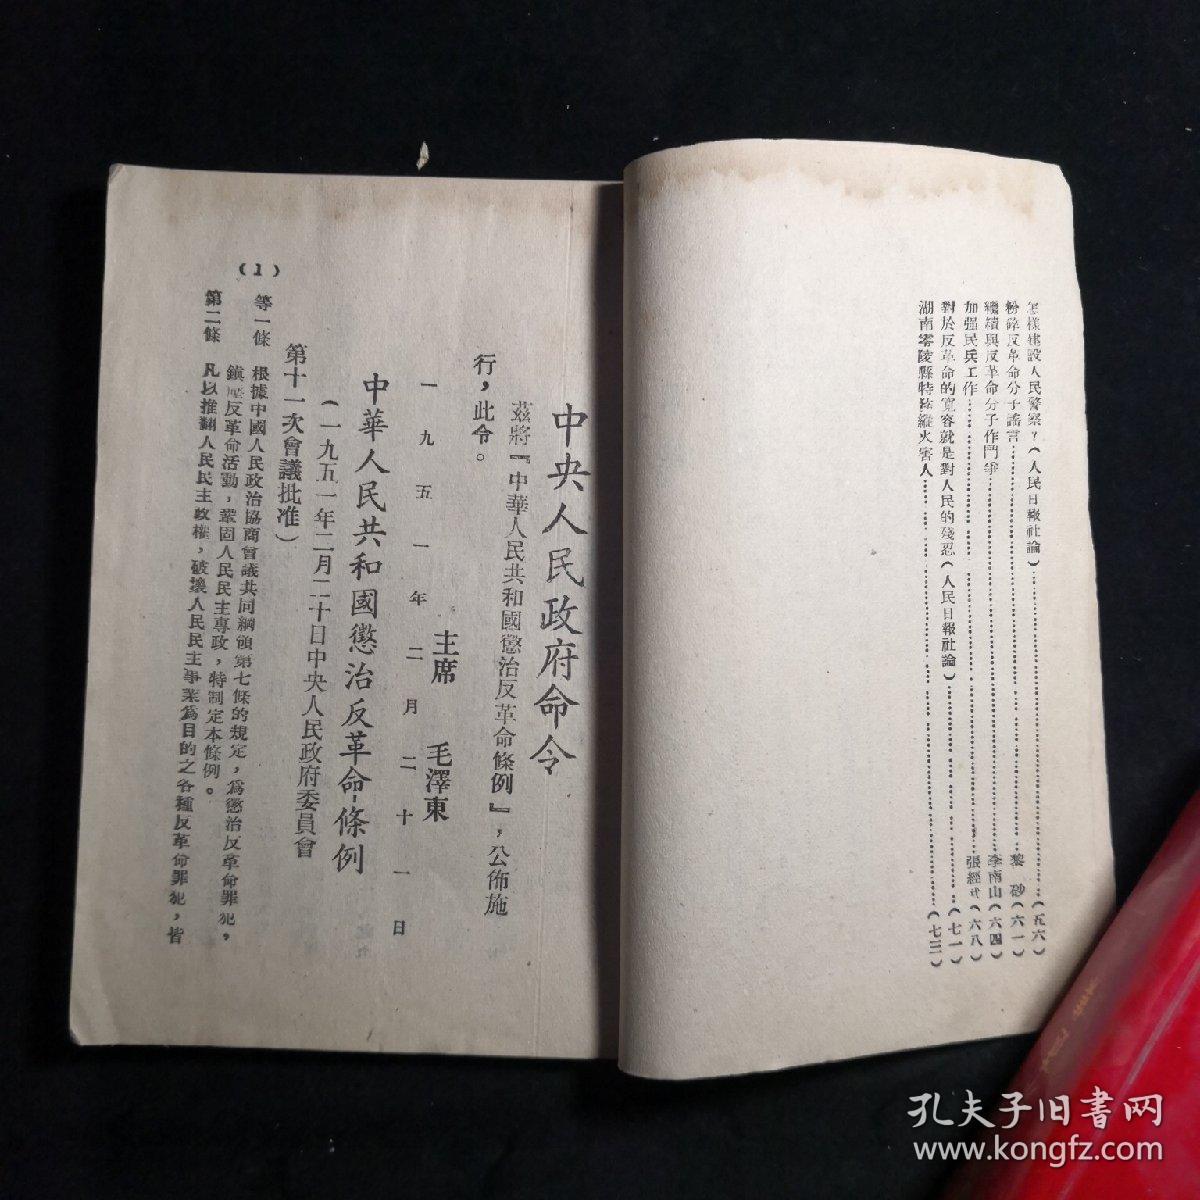 怎樣建設人民警察？（人民日報社論）……（五六）
粉碎反革命分子謠言……黎　砂（六一）
繼續與反革命分子作鬥爭……李南山（六四）
加强民兵工作……張經武（六八）
對於反革命的寬容就是對人民的殘忍（人民日報社論）……（七一）
湖南零陵縣特務縱火害人……（七三）
中央人民政府命令
茲將『中華人民共和國懲治反革命條例』，公佈施
行，此令。
主席　毛澤東
一九五一年二月二十一日
中華人民共和國懲治反革命條例
（一九五一年二月二十日中央人民政府委員會
第十一次會議批准）
等一條　根據中國人民政治協商會議共同綱領第七條的規定，爲懲治反革命罪犯，
鎮壓反革命活動，鞏固人民民主專政，特制定本條例。
第二條　凡以推翻人民民主政權，破壞人民民主事業爲目的之各種反革命罪犯，皆
（1）
孔夫子旧书网
www.kongfz.com